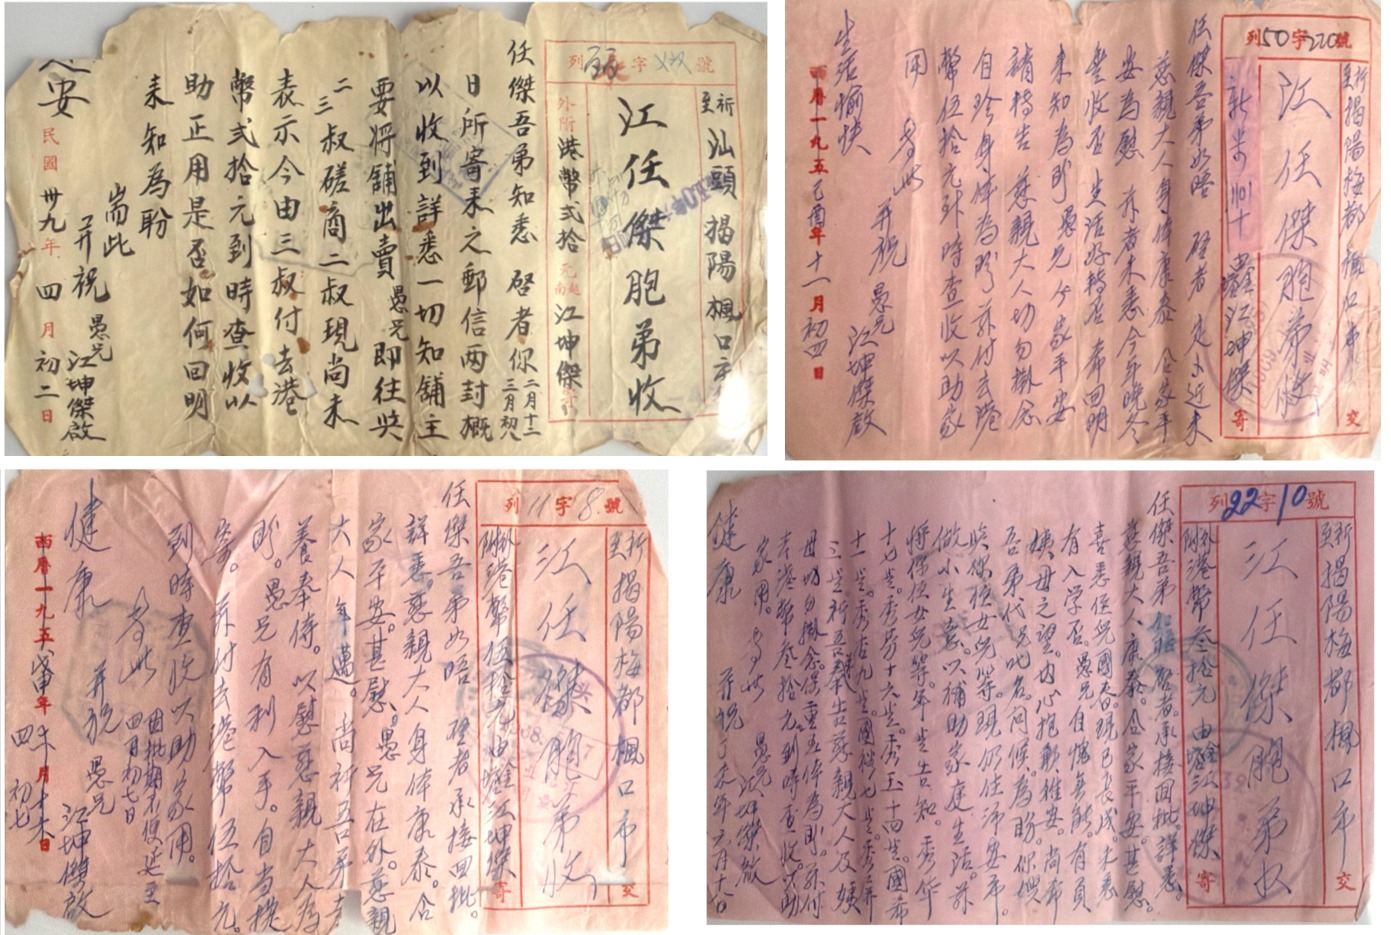 列 字 號
祈至汕頭揭陽楓口市
江任傑胞弟收
外附港幣弍拾元 越南 江坤傑寄
任傑吾弟知悉 啓者你二月十二三月初
日所寄来之郵信两封概
以收到詳悉一切知舖主
要将舖出賣愚兄即往與
二三叔磋商二叔現尚未
表示今由三叔付去港
幣弍拾元到時查收以
助正用是否如何回明
来知為盼
耑此
并祝 愚兄江坤傑啟
安
民國卅九年四月初二日
列50字220號
祈至揭陽梅都楓口市交
江任傑胞弟收
江坤傑寄
任傑吾弟如晤 啓者 近来
慈親大人身体康泰 合家平
安為慰 并者未悉今年晚冬
豐收否 生活好轉否 希回明
来知為盼 愚兄合家平安
請特告 慈親大人切勿掛念
自珍身体為盼 茲付去港
幣伍拾元到時查收以助家
用 專此
并祝 愚兄江坤傑啟
生活愉快
西曆一九五乙酉年十一月初四日
列11字8號
祈至揭陽梅都楓口市交
江任傑胞弟收
外附港幣伍拾元由 江坤傑寄
任傑吾弟如晤 啓者承接回批。
詳悉慈親大人身体康泰。合
家平安。甚慰。愚兄在外。慈親
大人年邁。尚祈吾弟孝
養奉侍。以慰慈親大人為
盼。愚兄有利入手。自当提
寄。茲付去港幣伍拾元。
到時查收以助家用。
專此 因批期不便延至四月初七日
并祝 愚兄江坤傑啟
健康
西曆一九五八戊申年 月 日
四 初七
列22字10號
祈至揭陽梅都楓口市交
江任傑胞弟收
外附港幣叁拾元 由 江坤傑寄
任傑吾弟 仁梅 啓者承接回批。詳悉
慈親大人康泰。合家平安。甚慰。
喜悉侄兒國春。現已長成。未悉
有入学否。愚兄自愧無能。有負
姨母之望。内心抱歉难安。尚希
吾弟代兄叱名。问候。為盼。你嫂
与你侄女兒等。現仍住沛安市。
做小生意。以補助家庭生活。茲
将你侄女兒等。年岁告知。秀华
十七岁。秀芳十六岁。秀玉十四岁。國希
十一岁。秀 九岁。國裕七岁。秀 
三岁。祈吾弟告慈親大人及姨
母切勿掛念。保重玉体為盼。茲付
去港幣叁拾元到時查收。以助
家用。专此 愚兄江坤傑啟
并祝 丁未年六月十六日
健康